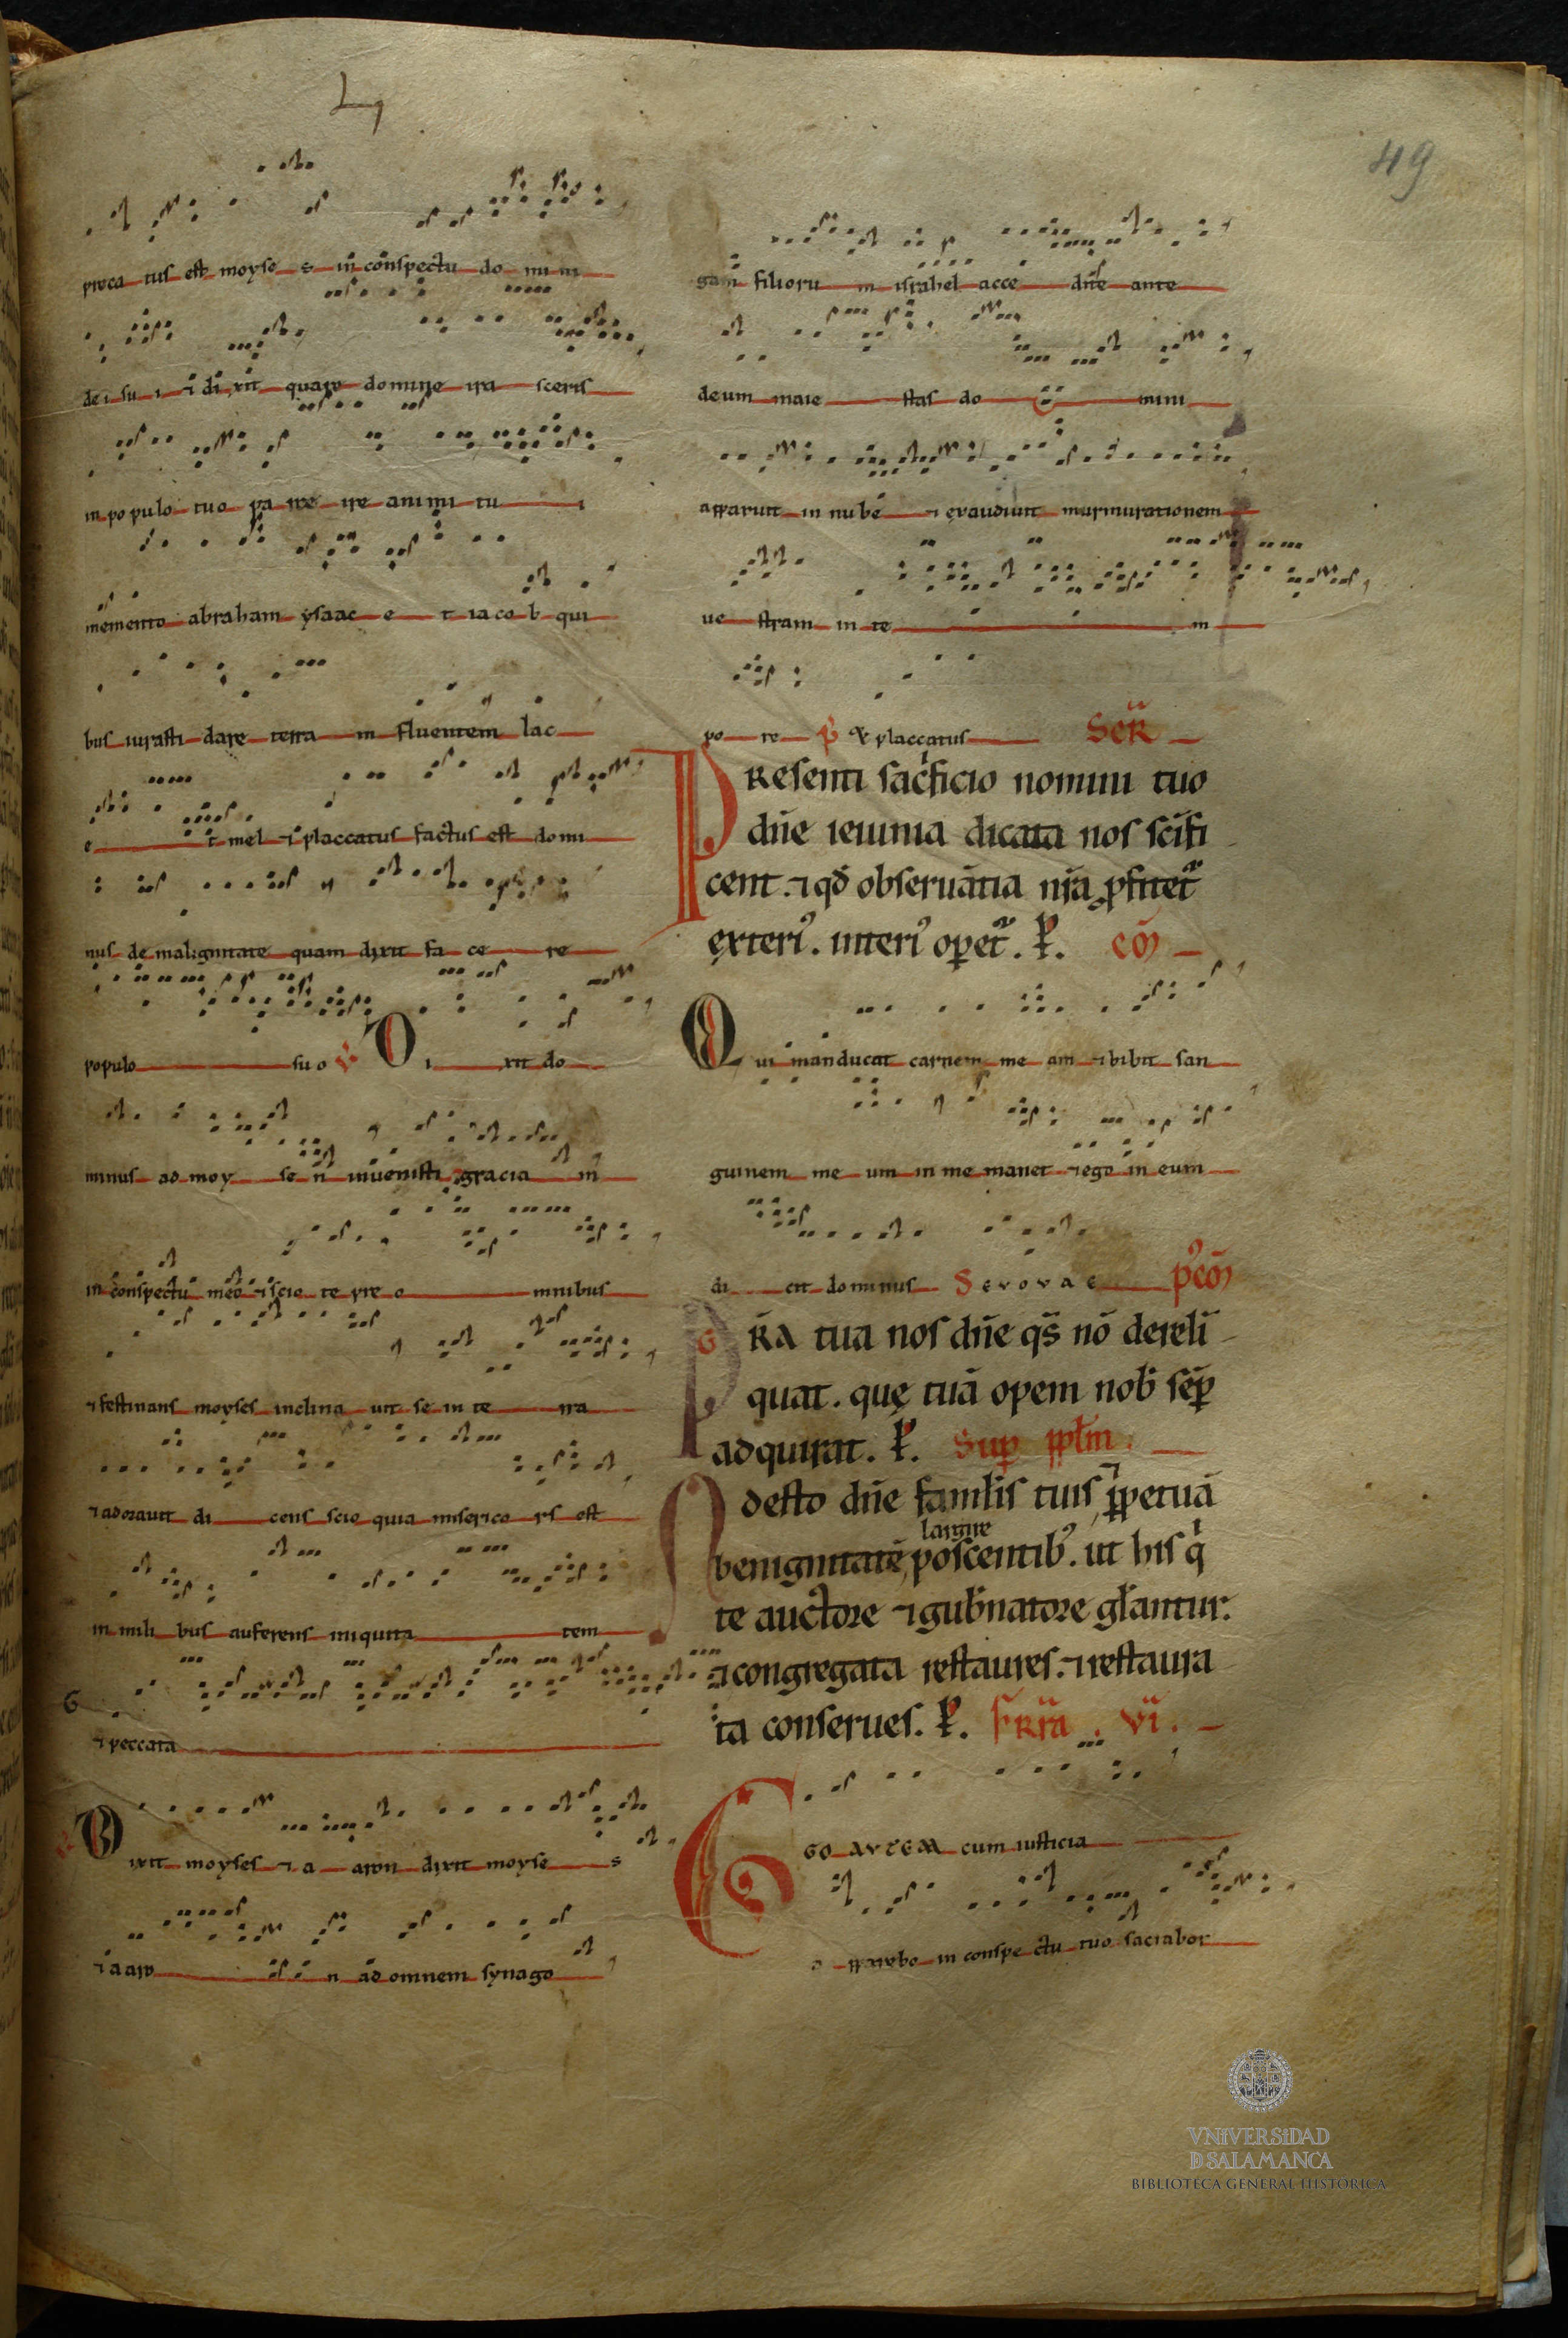 49
preca tus est moyse s in conspectu do mi ni
dei su i ⁊ di xit quare domine ira sceris
in populo tuo pa rce ire animi tu i
memento abraham ysaac e t iacob qui
bus iurasti dare terra m fluentem lac
e t mel ⁊ placcatus factus est domi
nus de malignitate quam dixit fa ce re
populo suo ℣ Di xit do
minus ad moy se n inuenisti gracia m
in conspectu meo ⁊ scio te pre o mnibus
⁊ festinans moyses inclina uit se in te rra
⁊ adorauit di cens scio quia miserico rs est
in mili bus auferens iniquita tem
⁊ peccata
℣ Dixit moyses ⁊ a aron dixit moyse s
⁊ aaro n ad omnem synago
gam filioru m israhel acce dite ante
deum maie stas do mini
apparuit in nube ⁊ exaudiuit murmurationem
ue stram in te m
po re ℟ Et placcatus Secr̄
PResenti sac̍ficio nomini tuo
dn̄e ieiunia dicata nos sc̄ifi
cent. ⁊ qd̄ obseruātia nr̄a ꝓfitet᷑
exteri᾽. interi᾽ oꝑet᷑. ꝑ. cō
Qui manducat carnem me am ⁊ bibit san
guinem me um in me manet ⁊ ego in eum
di cit dominus Sevovae p᾽cō
GR̄a tua nos dn̄e qs̄ nō dereli
quat. quę tuā opem nob̄ sēꝑ
adquirat. ꝑ. Suꝑ ppl̄m.
Adesto dn̄e famlis tuis, ꝑpetuā
largire
benignitatē, poscentib᾽. ut his q̍
te auctore ⁊ gub̄natore gl̄antur.
⁊ congregata restaures. ⁊ restaura
ta conserues. ꝑ. fR̄ia. vi.
EGO AVTEM cum iusticia
a pparebo in conspe ctu tuo saciabor
VNiVERSiDAD
D SALAMANCA
BIBLIOTECA GENERAL HISTÓRICA